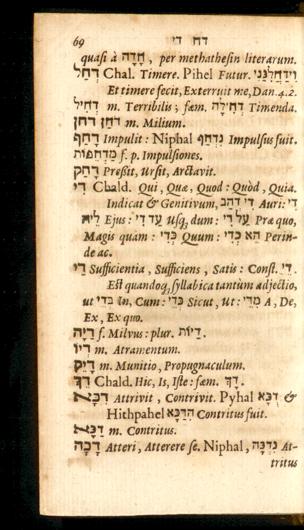 69 דח די
quasi à חָדָה, per methathesin literarum.
דְּחַל Chal. Timere. Pihel Futur. וִידַחֲלִנַּנִי
Et timere fecit, Exterruit me, Dan. 4. 2.
דְּחִיל m. Terribilis; fæm. דְּחִילָה Timenda.
דֹּחַן m. Milium.
דָּחַף Impulit: Niphal נִדְחַף Impulsus fuit.
מַדְחֵפוֹת f. p. Impulsiones.
דָּחַק Pressit, Ursit, Arctavit.
דִּי Chald. Qui, Quæ, Quod: Quòd, Quia.
Indicat & Genitivum, דִּי דְהַב Auri: דִּי
לֵיהּ Ejus: עַד דִּי Usq; dum: עַל דִּי Præ quo,
Magis quam: כְּדִי Quum: הָא כְּדִי Perin-
de ac.
דַּי Sufficientia, Sufficiens, Satis: Const. דֵּי.
Est quandoq; syllabica tantùm adjectio,
ut בְּדֵי In, Cum: כְּדֵי Sicut, Ut: מִדֵּי A, De,
Ex, Ex quo.
דַּיָּה f. Milvus: plur. דַּיּוֹת.
דְּיוֹ m. Atramentum.
דָּיֵק m. Munitio, Propugnaculum.
דֵּךְ Chald. Hic, Is, Iste: fæm. דָּךְ.
דָּכָא Attrivit, Contrivit. Pyhal דֻּכָּא &
Hithpahel הִדַּכָּא Contritus fuit.
דַּכָּא m. Contritus.
דָּכָה Atteri, Atterere se. Niphal, נִדְכָּה At-
tritus